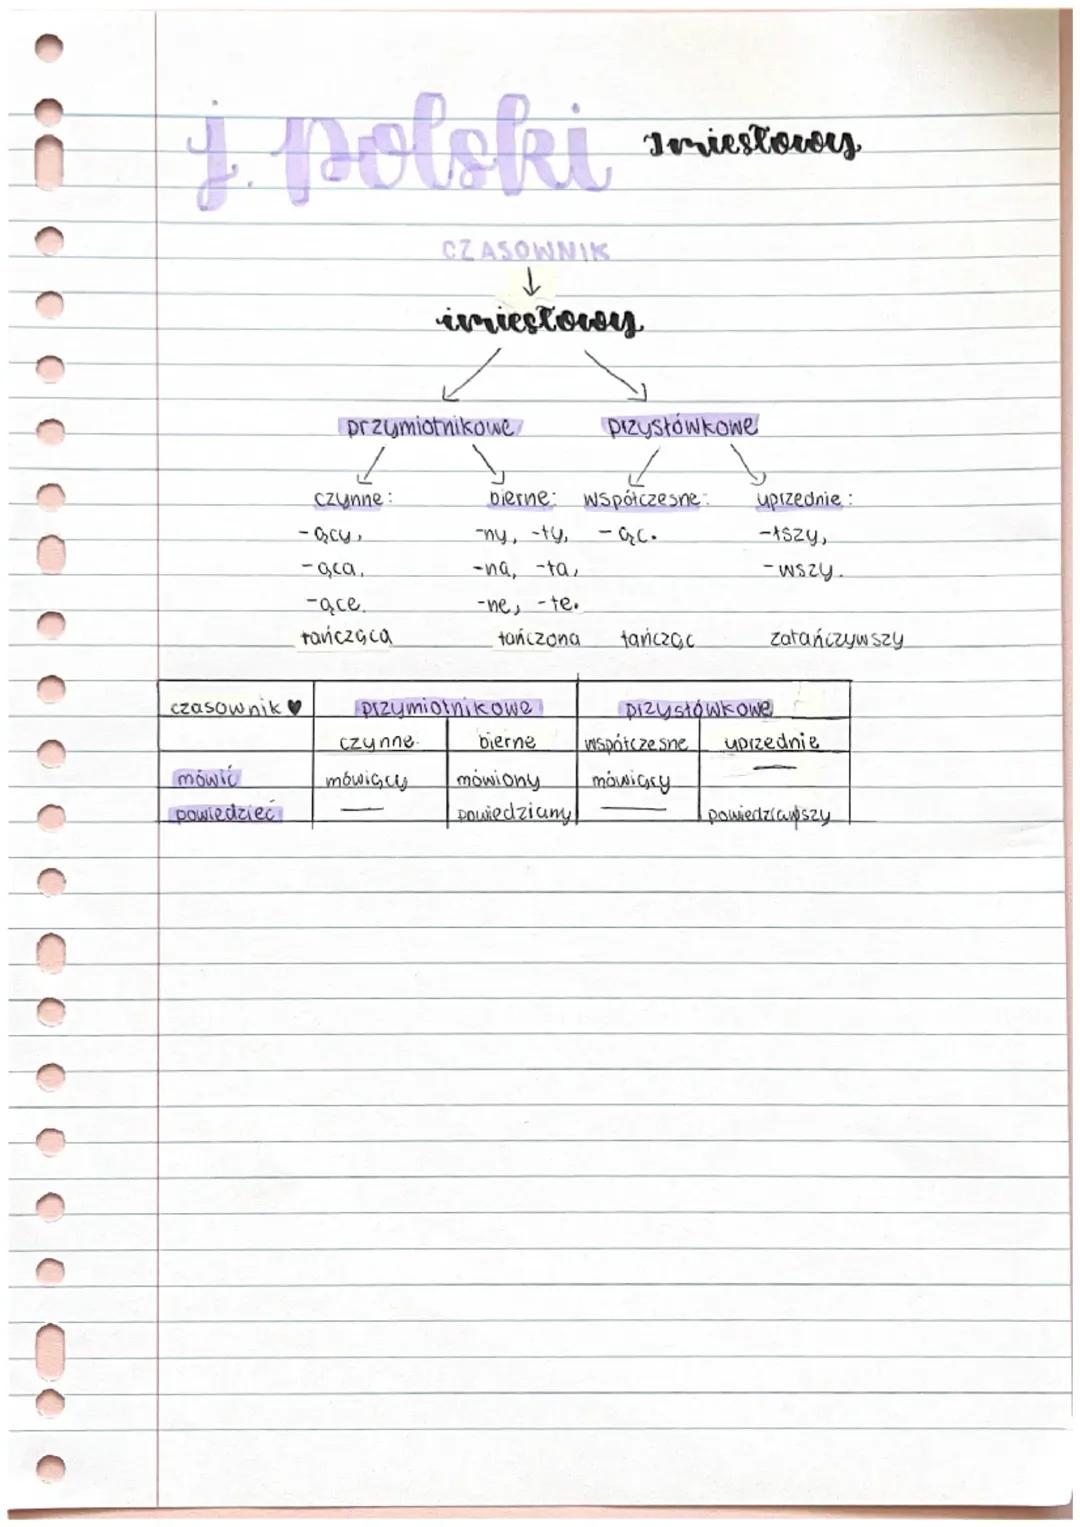 j. polski Imiesłowy
CZASOWNIK
↓
imiesłowy
przymiotnikowe przysłówkowe
czynne: bierne: współczesne: uprzednie:
-ący, -ny, -ty, -ąc. -łszy,
-ąca, -na, -ta, -wszy.
-ące. -ne, -te.
tańcząca tańczona tańcząc zatańczywszy
czasownik ♥ przymiotnikowe przysłówkowe
czynne bierne współczesne uprzednie
mówić mówiący mówiony mówiący —
powiedzieć — powiedziany — powiedziawszy